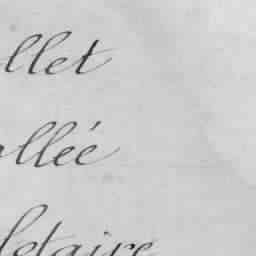 llet
allée
letaire